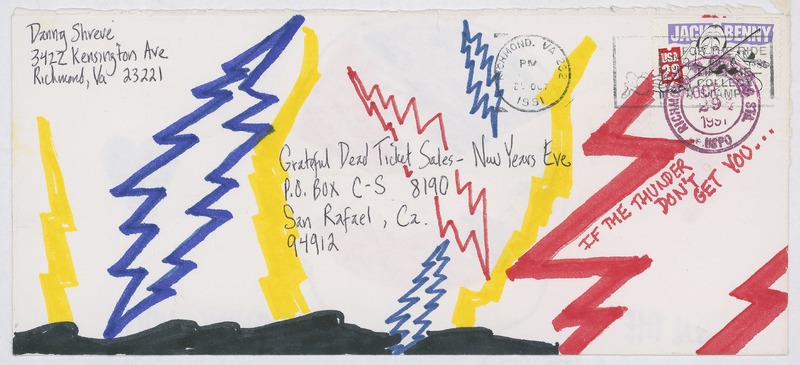 Danny Shreve
3422 Kensington Ave
Richmond, Va 23221
RICHMOND, VA 232
PM
29 OCT
1991
JACK BENNY
USA
29
FOR THE RIDE
COLLECT
STAMPS
RICHMOND
STA.
29
1991
USPO
Grateful Dead Ticket Sales - New Years Eve
P.O. Box C-S 8190
San Rafael, Ca.
94912
IF THE THUNDER
DON'T
GET YOU...